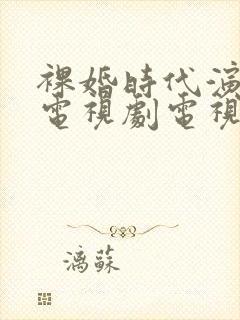 裸婚時代演
電視劇電視
漓蘇